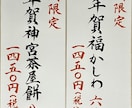 限定
年賀福かしわ 六
一四五〇円(税
限定
年賀神宮茶屋餅
一四五〇円(税